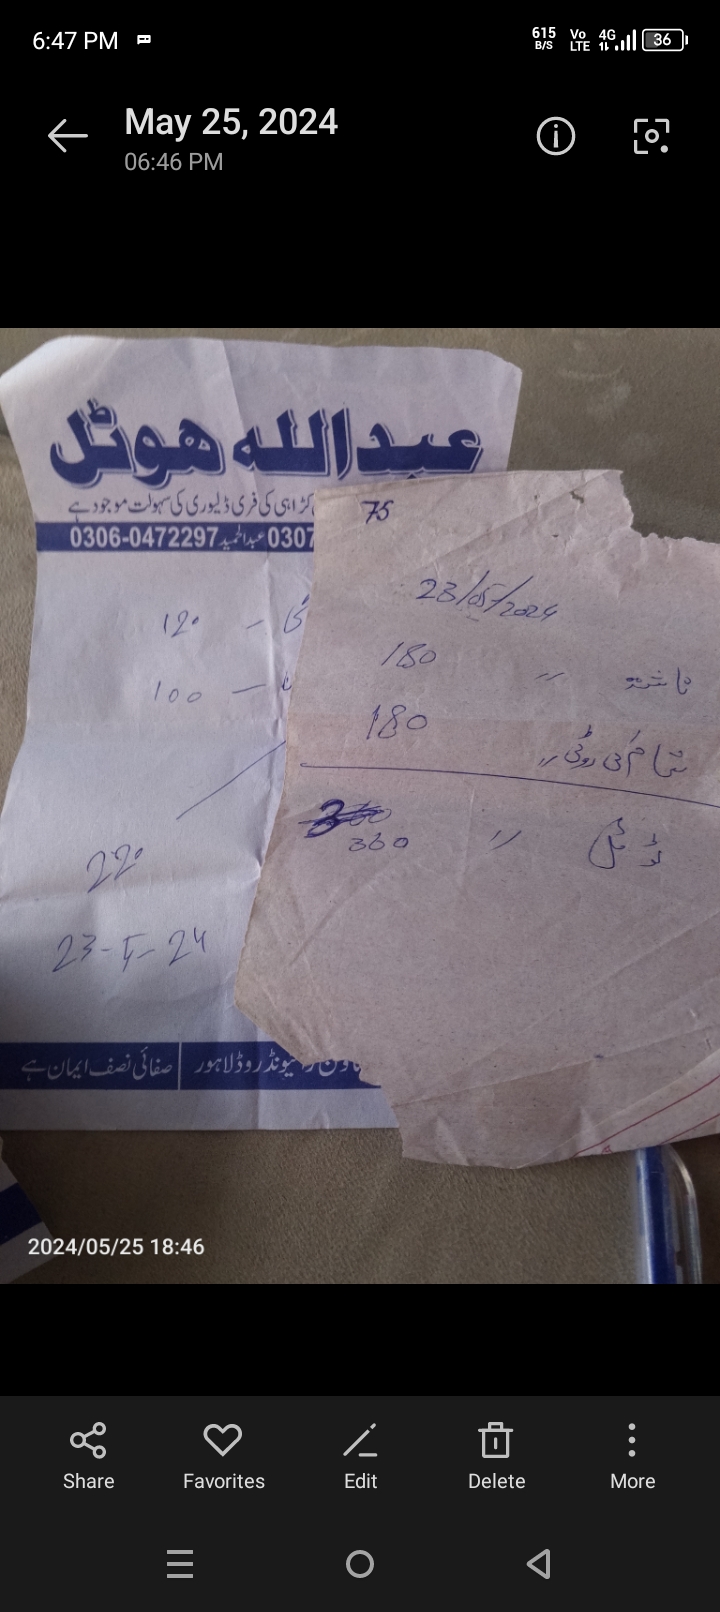 6:47 PM
615 B/S Vo LTE 4G 36
May 25, 2024
06:46 PM
عبداللہ ھوٹل
کڑاہی کی فری ڈلیوری کی سہولت موجود ہے
0307 عبدالحمید 0306-0472297
120 -
100 -
220
23-5-24
روڈ لاہور
صفائی نصف ایمان ہے
75
23/05/2024
ناشتہ " 180
شام کی روٹی " 180
360
ٹوٹل " 360
2024/05/25 18:46
Share
Favorites
Edit
Delete
More